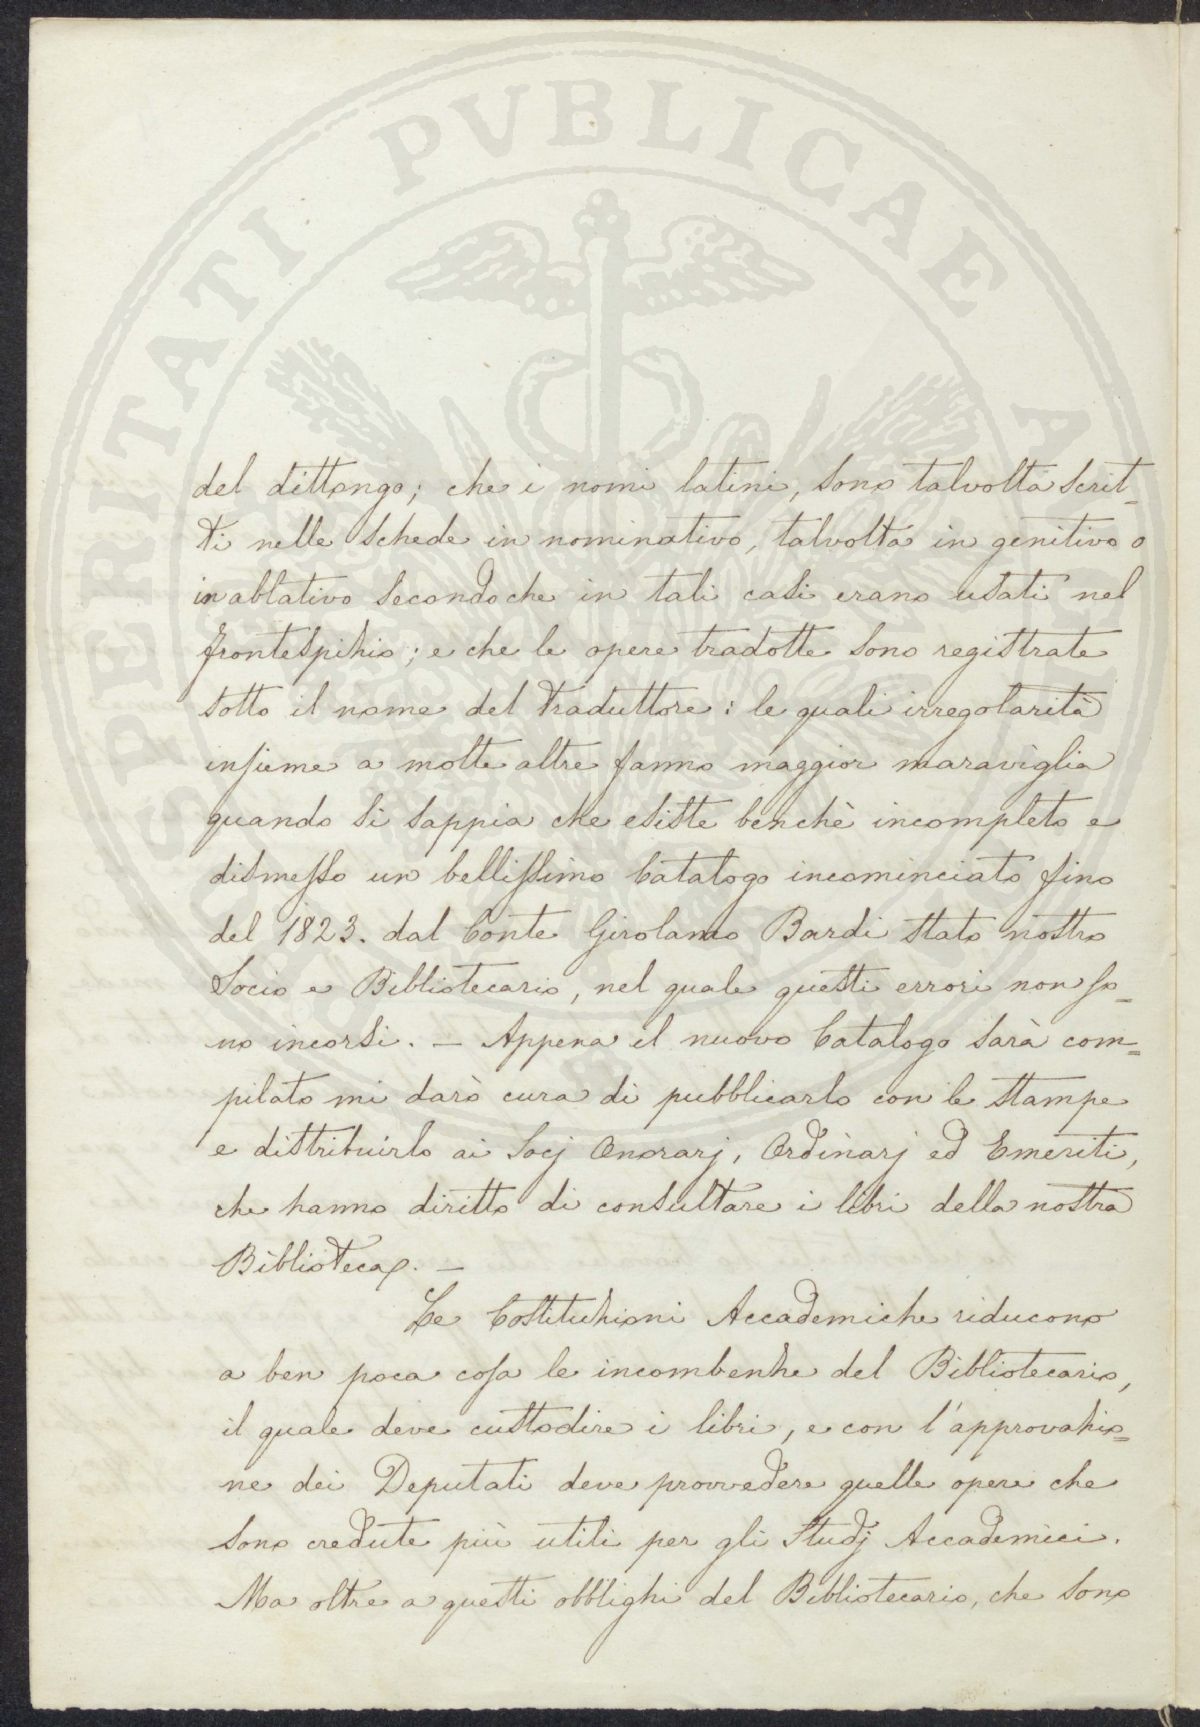 PROSPERITATI PVBLICAE AVGENDAE
del dittongo; che i nomi latini, sono talvolta scrit-
ti nelle schede in nominativo, talvolta in genitivo o
in ablativo secondoche in tali casi erano usati nel
frontespizio; e che le opere tradotte sono registrate
sotto il nome del Traduttore: le quali irregolarità
insieme a molte altre fanno maggior maraviglia
quando si sappia che esiste benchè incompleto e
dismesso un bellissimo Catalogo incominciato fino
del 1823. dal Conte Girolamo Bardi stato nostro
Socio e Bibliotecario, nel quale questi errori non so=
no incorsi. — Appena il nuovo Catalogo sarà com=
pilato mi darò cura di pubblicarlo con le stampe
e distribuirlo ai Socj Onorarj, Ordinarj ed Emeriti,
che hanno diritto di consultare i libri della nostra
Biblioteca. —
Le Costituzioni Accademiche riducono
a ben poca cosa le incombenze del Bibliotecario,
il quale deve custodire i libri, e con l'approvazio=
ne dei Deputati deve provvedere quelle opere che
sono credute più utili per gli Studj Accademici.
Ma oltre a questi obblighi del Bibliotecario, che sono